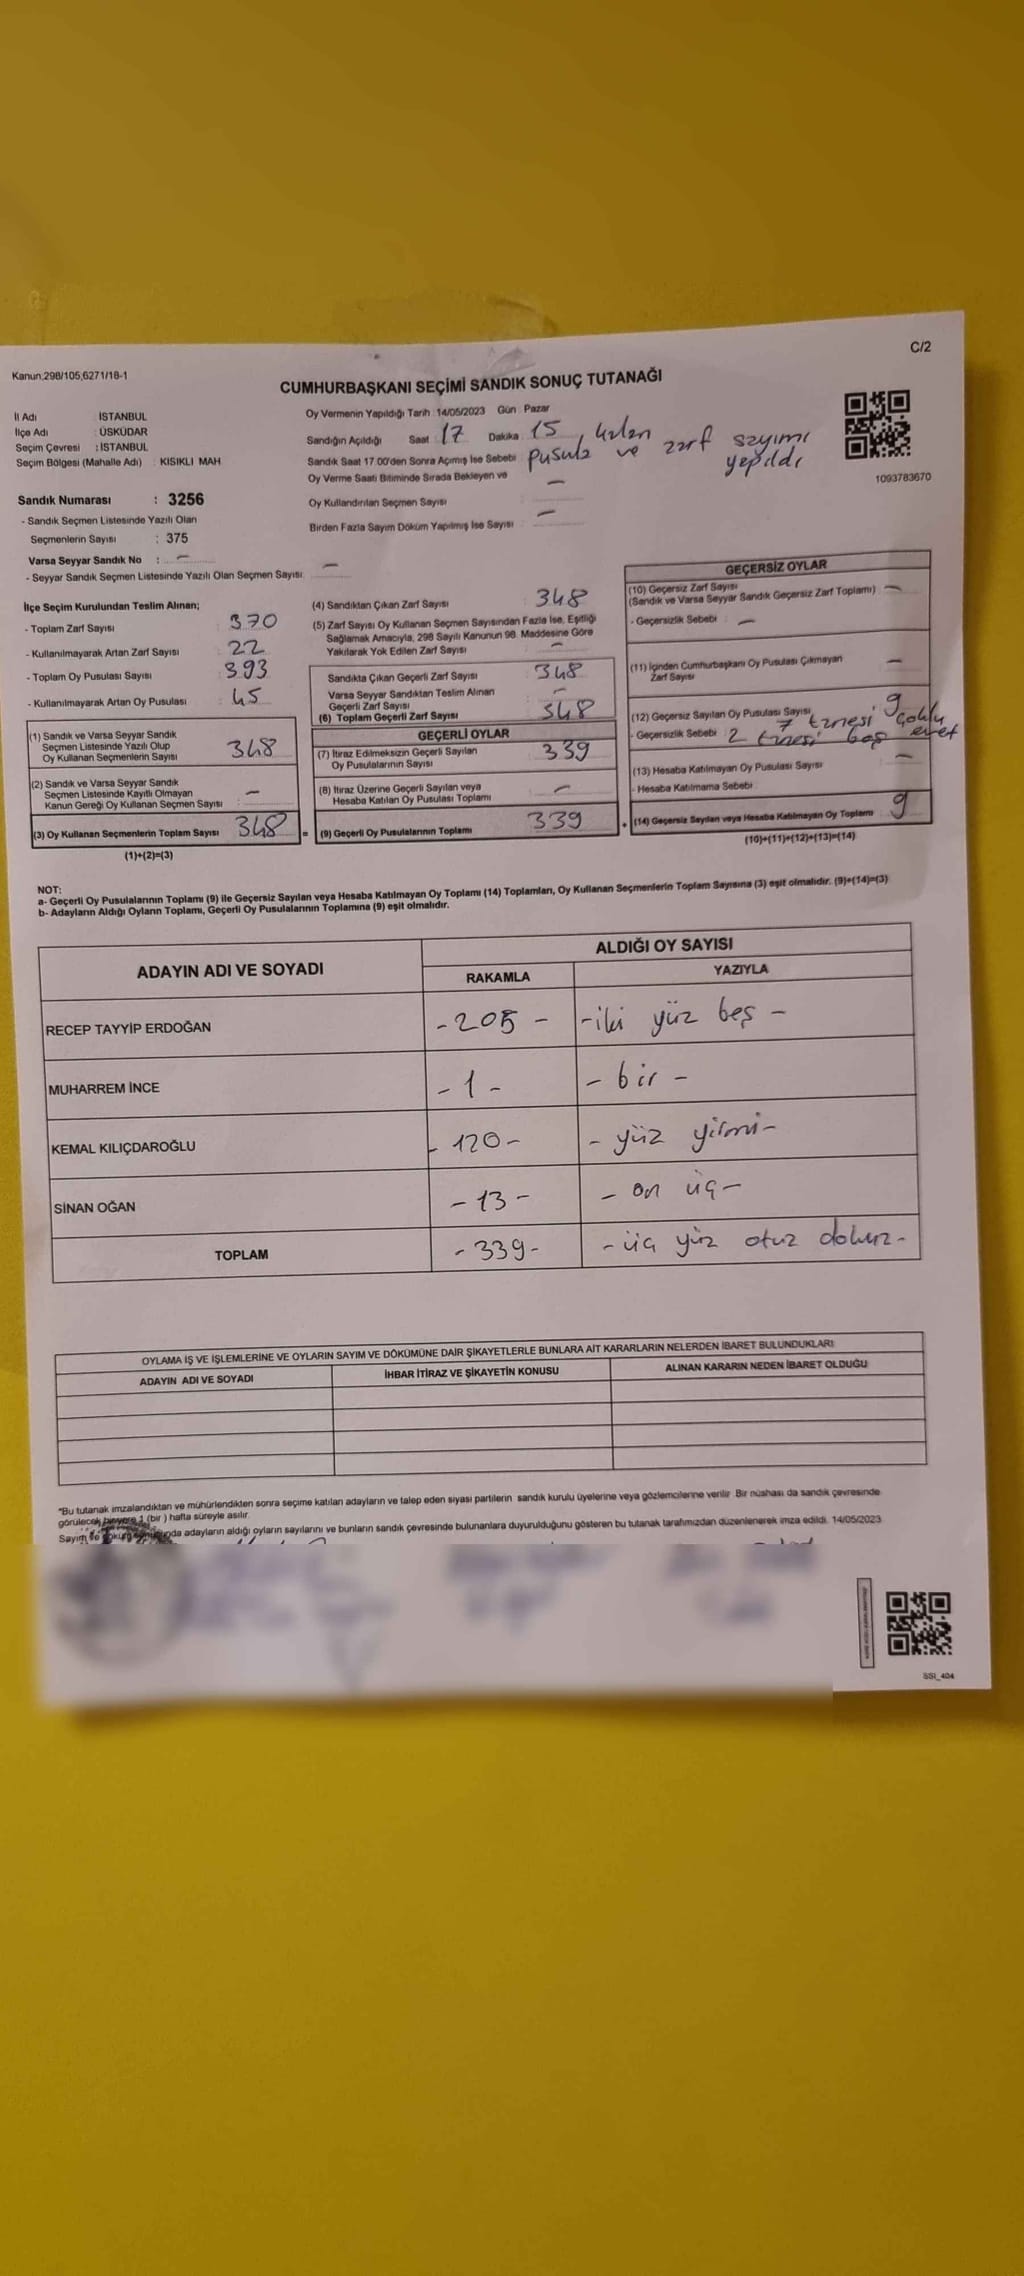 C/2
Kanun;298/105,6271/18-1
CUMHURBAŞKANI SEÇİMİ SANDIK SONUÇ TUTANAĞI
İl Adı : İSTANBUL
İlçe Adı : ÜSKÜDAR
Seçim Çevresi : İSTANBUL
Seçim Bölgesi (Mahalle Adı) : KISIKLI MAH
Sandık Numarası : 3256
- Sandık Seçmen Listesinde Yazılı Olan
Seçmenlerin Sayısı : 375
Varsa Seyyar Sandık No : -
- Seyyar Sandık Seçmen Listesinde Yazılı Olan Seçmen Sayısı: -
Oy Vermenin Yapıldığı Tarih : 14/05/2023 Gün : Pazar
Sandığın Açıldığı Saat : 17 Dakika : 15
Sandık Saat 17.00'den Sonra Açımış İse Sebebi : pusula ve zarf sayımı
yapıldı
Oy Verme Saati Bitiminde Sırada Bekleyen ve
Oy Kullandırılan Seçmen Sayısı : -
Birden Fazla Sayım Döküm Yapılmış İse Sayısı : -
1093783670
İlçe Seçim Kurulundan Teslim Alınan;
- Toplam Zarf Sayısı : 370
- Kullanılmayarak Artan Zarf Sayısı : 22
- Toplam Oy Pusulası Sayısı : 393
- Kullanılmayarak Artan Oy Pusulası : 45
(1) Sandık ve Varsa Seyyar Sandık
Seçmen Listesinde Yazılı Olup
Oy Kullanan Seçmenlerin Sayısı : 348
(2) Sandık ve Varsa Seyyar Sandık
Seçmen Listesinde Kayıtlı Olmayan
Kanun Gereği Oy Kullanan Seçmen Sayısı : -
(3) Oy Kullanan Seçmenlerin Toplam Sayısı : 348
(1)+(2)=(3)
(4) Sandıktan Çıkan Zarf Sayısı : 348
(5) Zarf Sayısı Oy Kullanan Seçmen Sayısından Fazla İse, Eşitliği
Sağlamak Amacıyla, 298 Sayılı Kanunun 98. Maddesine Göre
Yakılarak Yok Edilen Zarf Sayısı : -
Sandıkta Çıkan Geçerli Zarf Sayısı : 348
Varsa Seyyar Sandıktan Teslim Alınan
Geçerli Zarf Sayısı : -
(6) Toplam Geçerli Zarf Sayısı : 348
GEÇERLİ OYLAR
(7) İtiraz Edilmeksizin Geçerli Sayılan
Oy Pusulalarının Sayısı : 339
(8) İtiraz Üzerine Geçerli Sayılan veya
Hesaba Katılan Oy Pusulası Toplamı : -
= (9) Geçerli Oy Pusulalarının Toplamı : 339
GEÇERSİZ OYLAR
(10) Geçersiz Zarf Sayısı
(Sandık ve Varsa Seyyar Sandık Geçersiz Zarf Toplamı) : -
- Geçersizlik Sebebi : -
(11) İçinden Cumhurbaşkanı Oy Pusulası Çıkmayan
Zarf Sayısı : -
(12) Geçersiz Sayılan Oy Pusulası Sayısı : 9
7 tanesi çoklu
- Geçersizlik Sebebi : 2 tanesi boş evet
(13) Hesaba Katılmayan Oy Pusulası Sayısı : -
- Hesaba Katılmama Sebebi :
+ (14) Geçersiz Sayılan veya Hesaba Katılmayan Oy Toplamı : 9
(10)+(11)+(12)+(13)=(14)
NOT:
a- Geçerli Oy Pusulalarının Toplamı (9) ile Geçersiz Sayılan veya Hesaba Katılmayan Oy Toplamı (14) Toplamları, Oy Kullanan Seçmenlerin Toplam Sayısına (3) eşit olmalıdır. (9)+(14)=(3)
b- Adayların Aldığı Oyların Toplamı, Geçerli Oy Pusulalarının Toplamına (9) eşit olmalıdır.
ADAYIN ADI VE SOYADI ALDIĞI OY SAYISI
RAKAMLA YAZIYLA
RECEP TAYYİP ERDOĞAN -205- -iki yüz beş-
MUHARREM İNCE -1- -bir-
KEMAL KILIÇDAROĞLU -120- -yüz yirmi-
SİNAN OĞAN -13- -on üç-
TOPLAM -339- -üç yüz otuz dokuz-
OYLAMA İŞ VE İŞLEMLERİNE VE OYLARIN SAYIM VE DÖKÜMÜNE DAİR ŞİKAYETLERLE BUNLARA AİT KARARLARIN NELERDEN İBARET BULUNDUKLARI
ADAYIN ADI VE SOYADI İHBAR İTİRAZ VE ŞİKAYETİN KONUSU ALINAN KARARIN NEDEN İBARET OLDUĞU
"Bu tutanak imzalandıktan ve mühürlendikten sonra seçime katılan adayların ve talep eden siyasi partilerin sandık kurulu üyelerine veya gözlemcilerine verilir. Bir nüshası da sandık çevresinde
görülecek bir yere 1 (bir) hafta süreyle asılır.
Sayım ve adayların aldığı oyların sayılarını ve bunların sandık çevresinde bulunanlara duyurulduğunu gösteren bu tutanak tarafımızdan düzenlenerek imza edildi. 14/05/2023
SSI_404